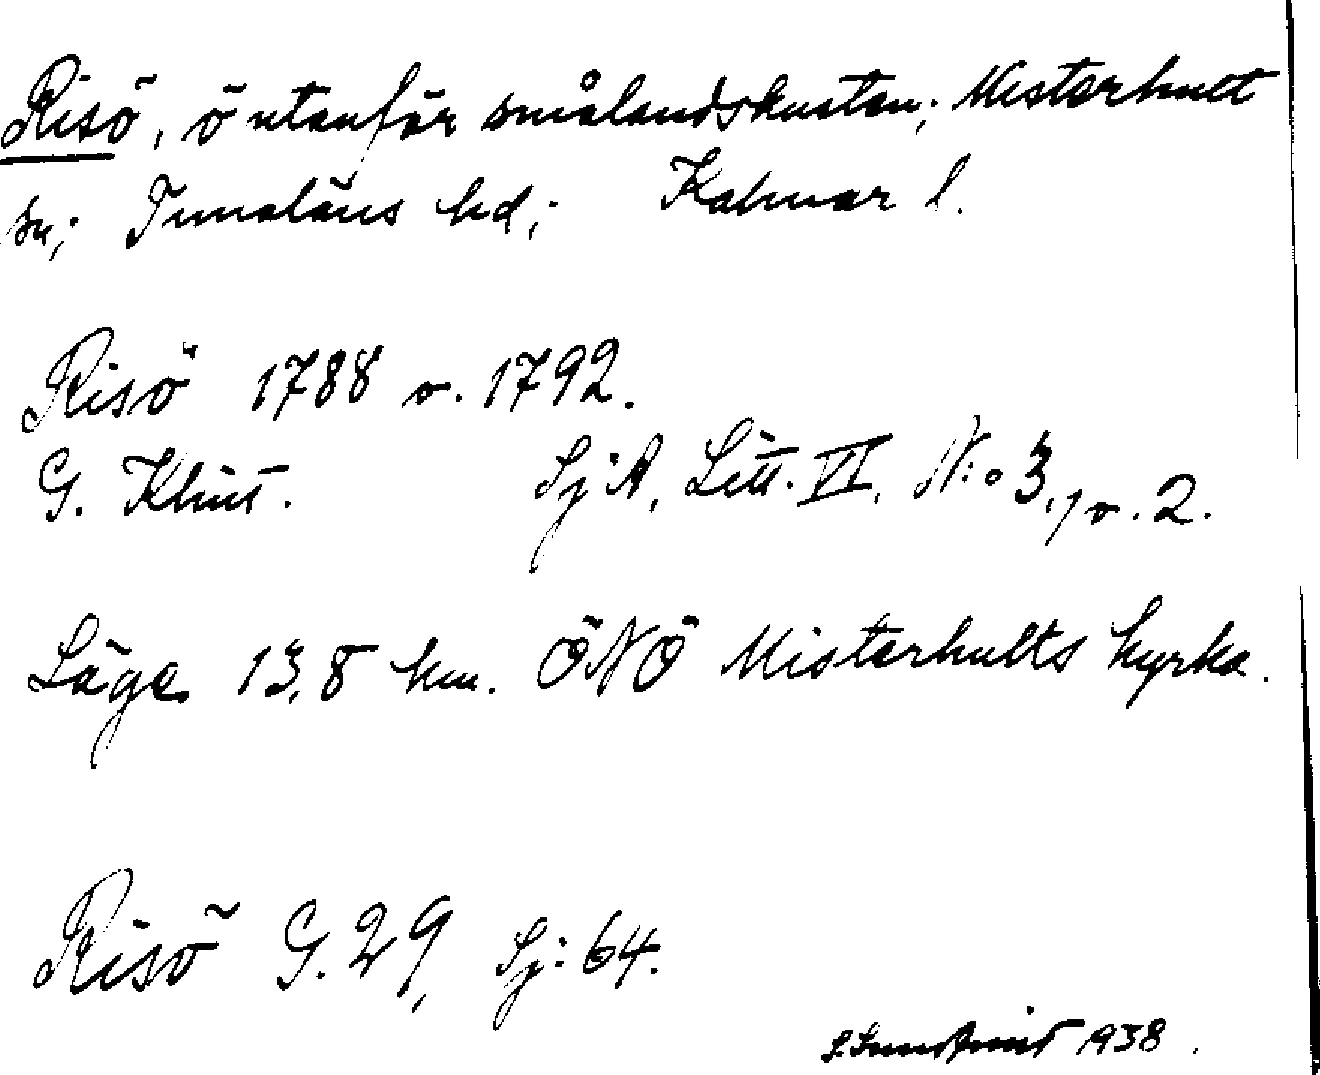 Risö, ö utanför smålandskusten; Misterhult
sn; Tunaläns hd; Kalmar l.
Risö 1788 o. 1792.
G. Klint. SjA, Litt. VI, N:o 3, 1 o. 2.
Läge 13,8 km. ÖNÖ Misterhults kyrka.
Risö G. 29, Sj: 64.
1938.